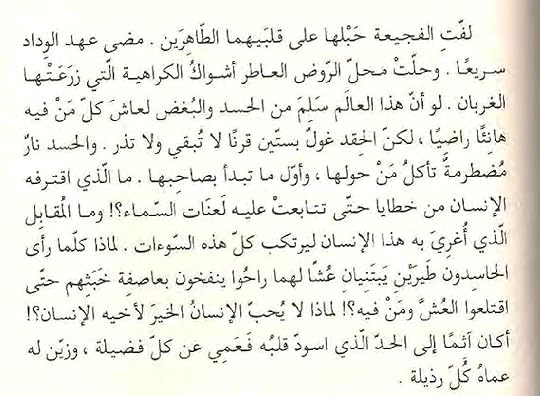 لفّتِ الفجيعة حَبْلها على قلبَيهما الطّاهِرَين . مضى عهد الوِداد
سريعًا . وحلّتْ محلّ الرّوض العاطر أشواكُ الكراهية الّتي زرَعَتْها
الغربان . لو أنّ هذا العالَم سَلِمَ من الحسد والبُغض لعاشَ كلّ مَنْ فيه
هانِئًا راضيًا ، لكنّ الحِقد غولٌ بستّين قرنًا لا تُبقي ولا تذر . والحسد نارٌ
مُضطرمةٌ تأكلُ مَنْ حولها ، وأوّل ما تبدأ بصاحِبها . ما الّذي اقترفه
الإنسان من خطايا حتّى تتابعتْ عليه لَعنَات السّماء؟! وما المُقابِل
الّذي أُغرِيَ به هذا الإنسان ليرتكب كلّ هذه السّوءات . لماذا كلّما رأى
الحاسِدون طَيرَيْن يَبتَنِيان عُشًّا لهما راحُوا ينفخون بعاصفةِ خَبَثِهم حتّى
اقتلعوا العُشَّ ومَنْ فيه؟! لماذا لا يُحبّ الإنسانُ الخيرَ لأخيه الإنسان؟!
أكان آثمًا إلى الحدّ الّذي اسودّ قلبُه فَعَمِي عن كلّ فضيلة ، وزيّن له
عماهُ كُلّ رذيلة .